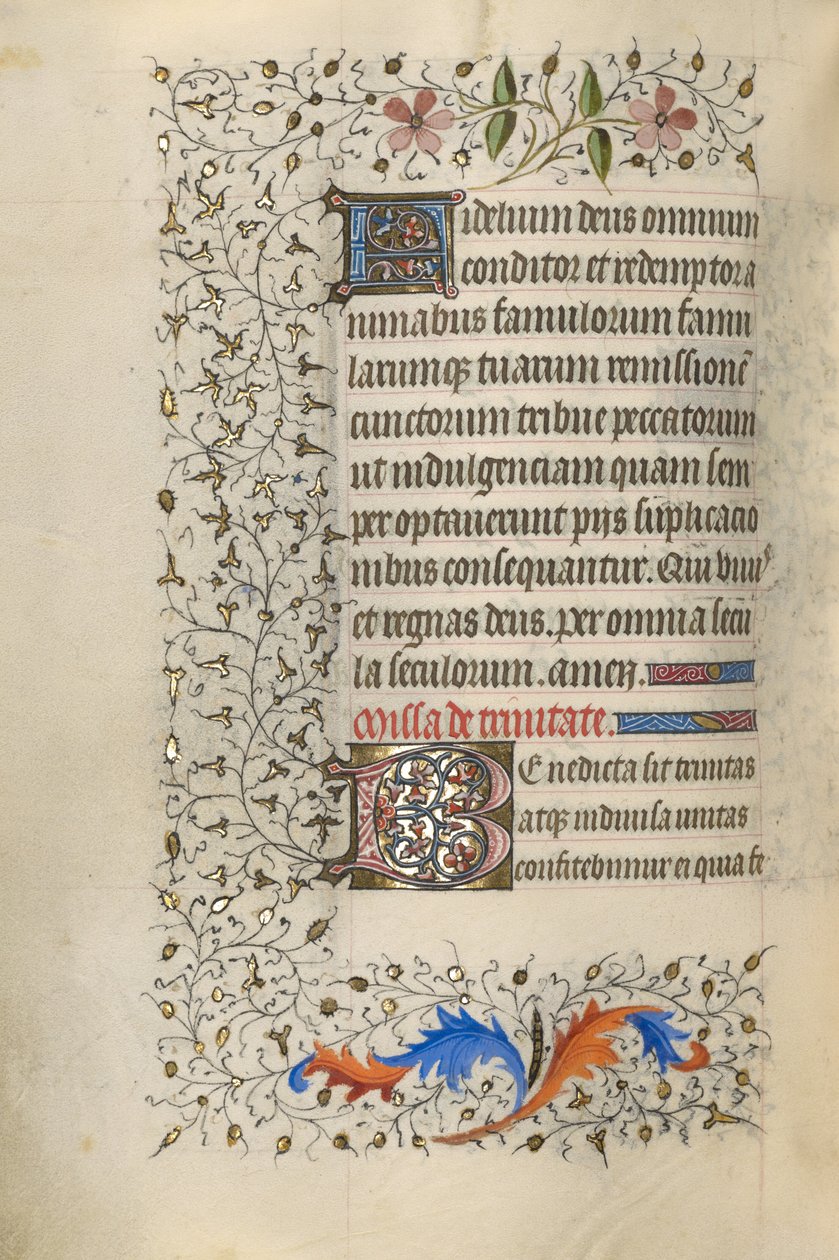 Fidelium deus omnium
conditor et redemptor a
nimabus famulorum famu
larumqꝫ tuarum remissionē
cunctorum tribue peccatorum
ut indulgenciam quam sem
per optauerunt pijs suplicacio
nibus consequantur. Qui viuis
et regnas deus. per omnia secu
la seculorum. amen.
Missa de trinitate.
BEnedicta sit trinitas
atqꝫ indiuisa unitas
confitebimur ei quia fe